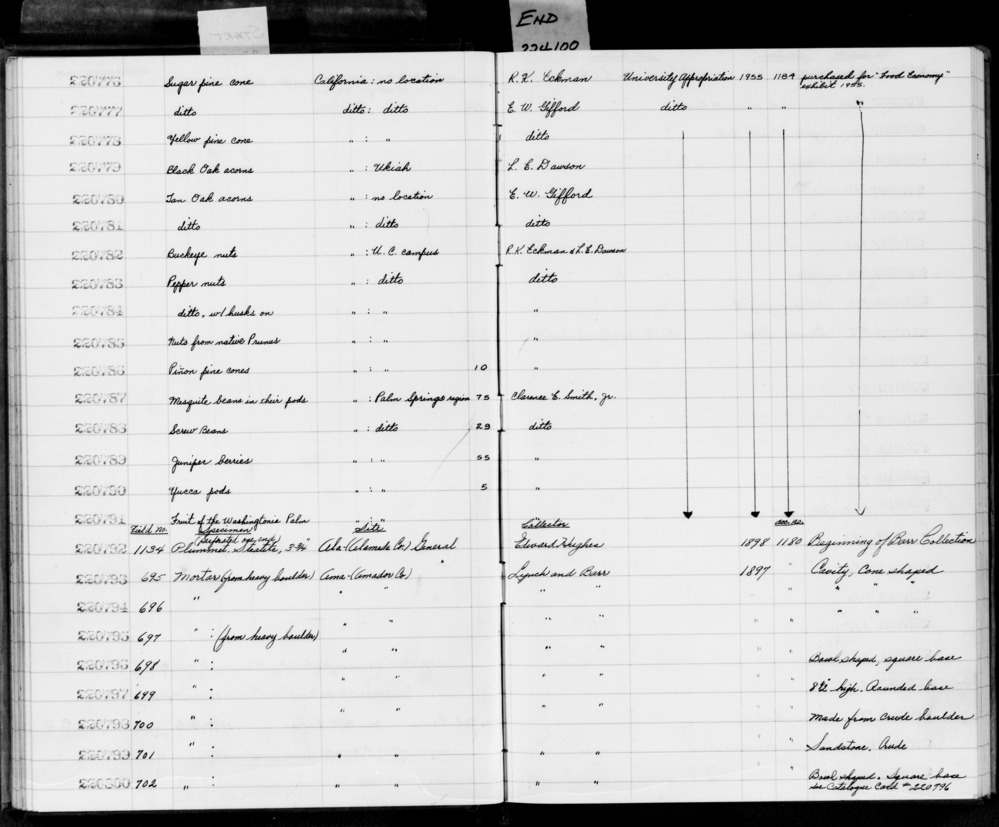 START
END
224100
220776 Sugar pine cone California: no location R. K. Eckman University Appropriation 1955 1184 purchased for "Food Economy" exhibit 1955.
220777 ditto ditto: ditto E. W. Gifford ditto " " "
220778 Yellow pine cone " : " ditto
220779 Black Oak acorns " : Ukiah L. E. Dawson
220780 Tan Oak acorns " : no location E. W. Gifford
220781 ditto " : ditto ditto
220782 Buckeye nuts " : U.C. campus R.K. Eckman & L.E. Dawson
220783 Pepper nuts " : ditto ditto
220784 ditto, w/ husks on " : " "
220785 Nuts from native Prunus " : " "
220786 Piñon pine cones " : " 10 "
220787 Mesquite beans in their pods " : Palm Springs region 75 Clarence E. Smith, Jr.
220788 Screw Beans " : ditto 29 ditto
220789 Juniper berries " : " 55 "
220790 Yucca pods " : " 5 "
220791 Fruit of the Washingtonia Palm " : " "
Field No. Specimen Site Collector acc. no.
(Perforated one end)
220792 1134 Plummet, Steatite, 3-3/4" Ala-(Alameda Co.) General Edward Hughes 1898 1180 Beginning of Barr Collection
220793 695 Mortar (from heavy boulder) Ama-(Amador Co.) Lynch and Barr 1897 " Cavity, Cone shaped
220794 696 " " " " " " " " " "
220795 697 " : (from heavy boulder) " " " " " " " " "
220796 698 " : " " " " " " Bowl shaped, square base
220797 699 " : " " " " " " 8½" high. Rounded base
220798 700 " : " " " " " " Made from crude boulder
220799 701 " : " " " " " Sandstone. Crude
220800 702 " : " " " " " Bowl shaped. Square base
see Catalogue Card # 220796